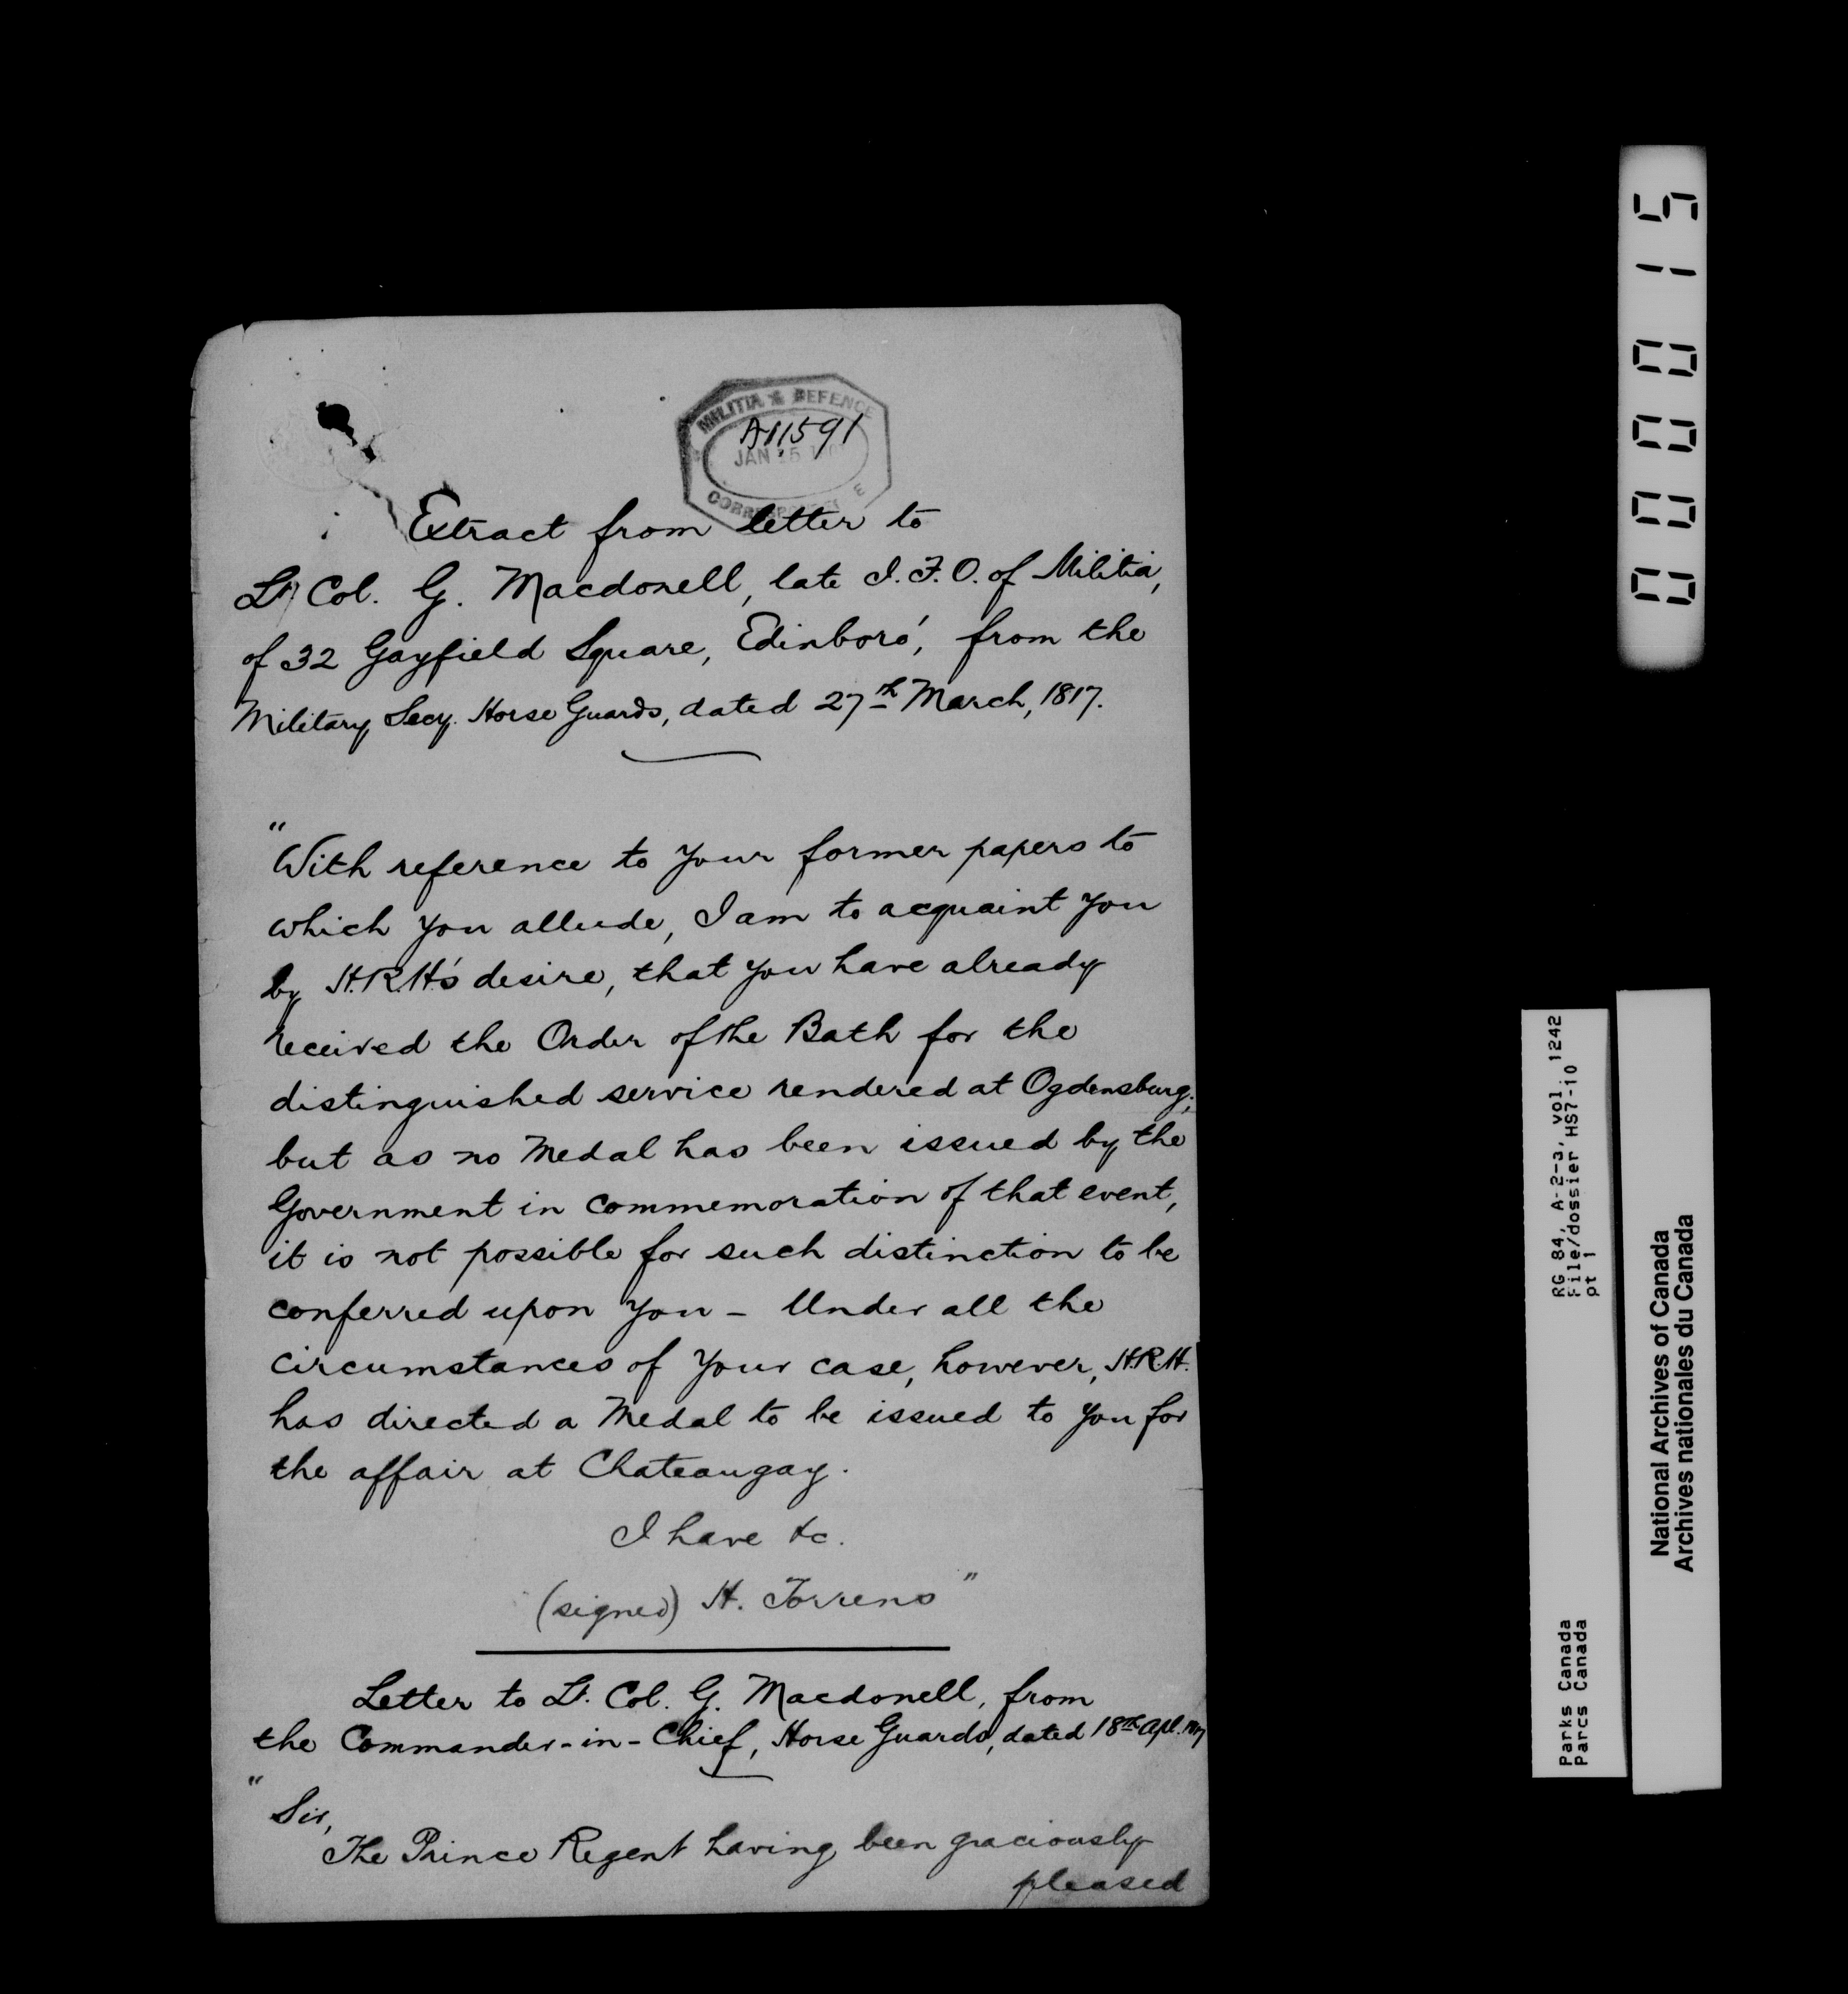 MILITIA & DEFENCE
A11591
JAN 15
Extract from letter to
Lt Col. G. Macdonell, late I.F.O. of Militia,
of 32 Gayfield Square, Edinboro', from the
Military Secy. Horse Guards, dated 27th March, 1817.
"With reference to your former papers to
which you allude, I am to acquaint you
by H.R.H's desire, that you have already
received the Order of the Bath for the
distinguished service rendered at Ogdensburg;
but as no Medal has been issued by the
Government in commemoration of that event,
it is not possible for such distinction to be
conferred upon you – Under all the
circumstances of your case, however, H.R.H.
has directed a Medal to be issued to you for
the affair at Chateaugay.
I have &c.
(signed) H. Torrens"
Letter to Lt. Col. G. Macdonell, from
the Commander-in-Chief, Horse Guards, dated 18th Apl. 1817
"Sir,
The Prince Regent having been graciously
pleased
000015
RG 84, A-2-3, vol. 1242
File/dossier HS7-10
pt 1
Parks Canada
Parcs Canada
National Archives of Canada
Archives nationales du Canada